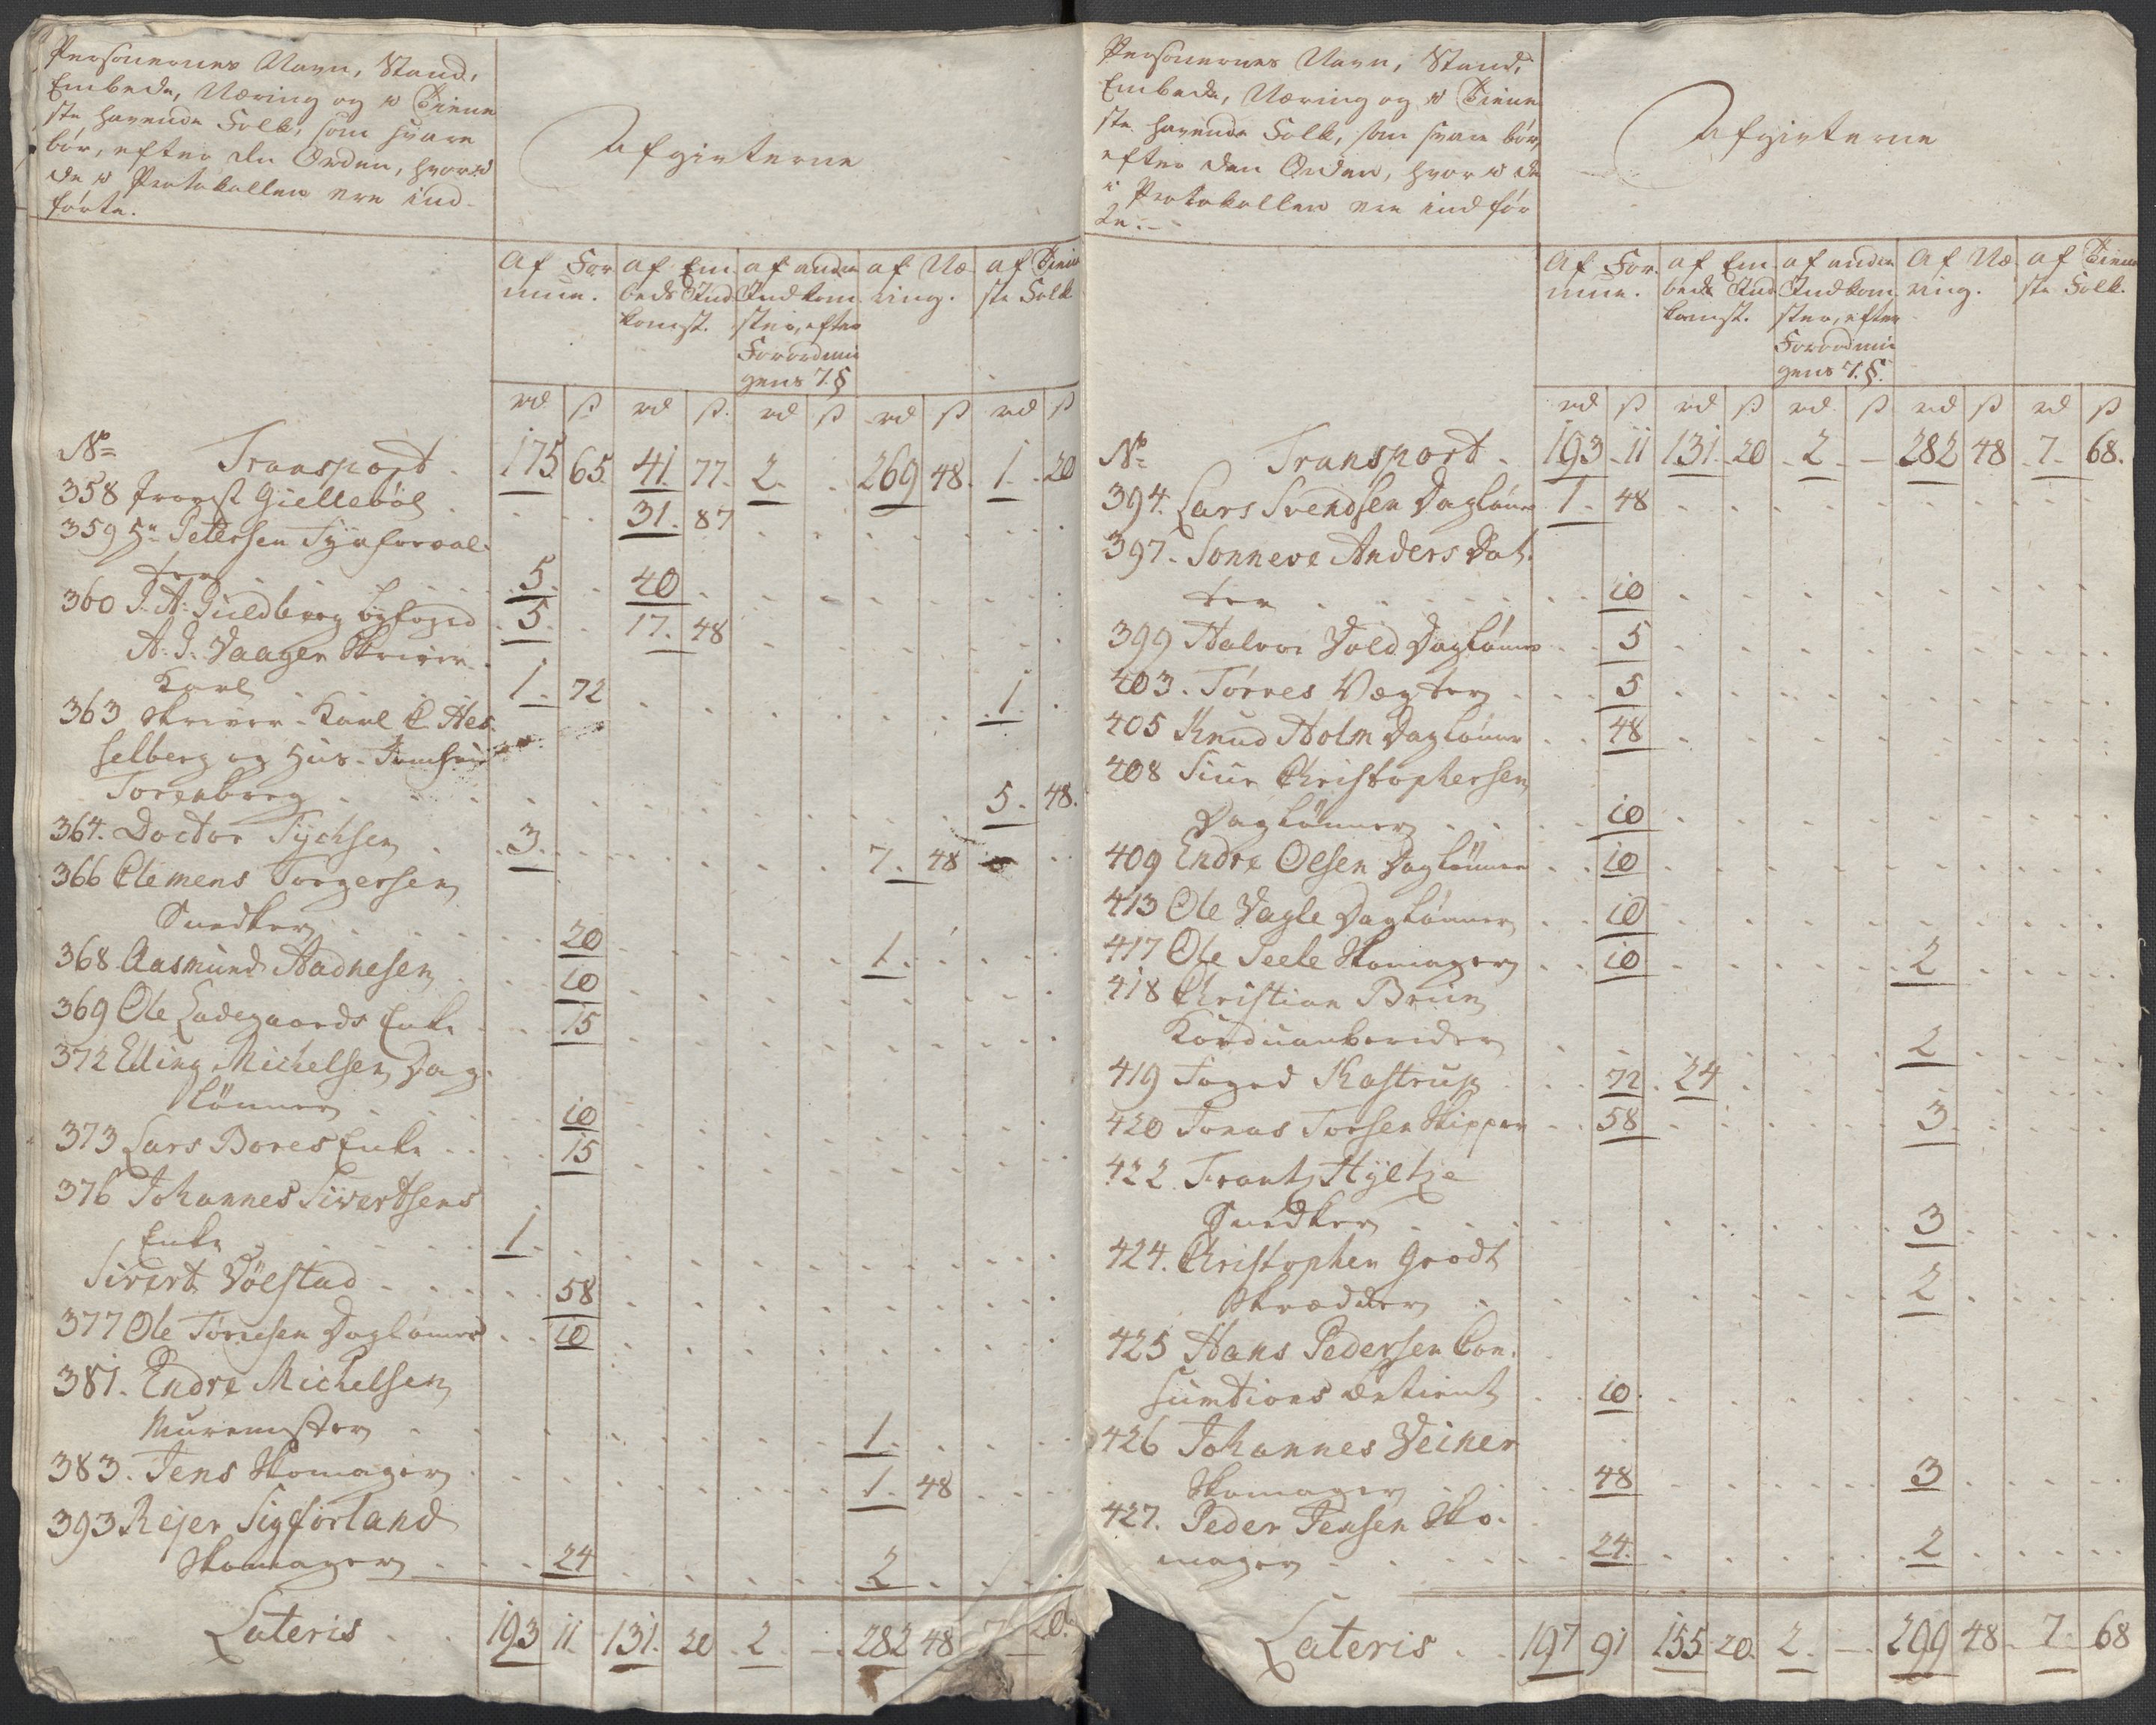 Personernes Navn, Stand,
Embede, Næring og i Tiene
ste havende Folk, som svare
bör, efter den Orden, hvor i
de i Protokollen ere ind-
förte.
Afgivterne
Af For mue. | af Em beds Ind komst. | af andre Indkom ster, efter Forordnin gens 7. § | af Næ ring. | af Tiene ste Folk
rd ß rd ß rd ß rd ß rd ß
No Transport . 175 65. 41. 77. 2. . 269 48. 1. 20
358 Provst Giellebøl . . . 31. 87
359 Hr Petersen Fyrforval-
ter 5. . 40
360 J. A. Guldberg byfoged 5. . 17. 48
A. J. Vaagen Skriver
Karl 1. 72 . . . 1.
363 Skriver-Karl C Hes-
selberg og Huus-Jomfrue
Torenborg . . . 5. 48.
364. Doctor Tychsen . 3. . . . 7. 48
366 Clemens Torgersen
Snedker . . 20 . . 1.
368 Aasmund Aadnesen . . 10
369 Ole Ladegaards Enke . . 15
372 Elling Michelsen Dag-
lönner . . 10
373 Lars Bores Enke . . 15
376 Johannes Sivertsens
Enke . . 1.
Sivert Vølstad . . . 58
377 Ole Tørresen Daglönner . . 10
381. Endre Michelsen
Muurmester . . . 1.
383. Jens Skomager . . . 1. 48
393 Rejer Sigforland
Skomager . . 24 . . 2
Lateris . 193 11. 131. 20 . 2 . — . 282 48 7 20.
Personernes Navn, Stand,
Embede, Næring og i Tiene
ste havende Folk, som svare bör,
efter den Orden, hvor i de
i Protokollen ere indför
te.
Afgivterne
Af For- mue. | af Em- beds Ind komst. | af andre Indkom ster, efter Forordnin gens 7. §. | Af Næ ring. | af Tiene ste Folk.
rd ß rd ß rd ß rd ß rd ß
No Transport . 193 11 131 20 . 2 . — 282 48 . 7. 68.
394. Lars Svendsen Daglönner 1. 48
397. Sonneve Anders Dat-
ter . . . 10
399 Halvor Vold Daglönner . . 5
403. Törres Vægter . . 5
405 Knud Holm Daglönner . . 48
408 Siur Christophersen
Daglönner . . 10
409 Endre Olsen Daglönner . . 10
413 Ole Vagle Daglönner . . 10
417 Ole Teele Skomager . . 10 . . . 2
418 Christian Bruun
Korduanbereder . . . 2
419 Foged Kastrup . . 72 . 24
420 Jonas Torsen Skipper . . 58 . . 3
422 Frantz Hyeltze
Snedker . . . 3
424. Christopher Grodt
Skrædder . . . 2
425 Hans Pedersen Con-
sumtions Betient . . 10
426 Johannes Veiner
Skomager . . 48 . . 3
427. Peder Jensen Sko-
mager . . 24. . . 2
Lateris . . 197 91 155 20. 2. — . 299 48. 7. 68